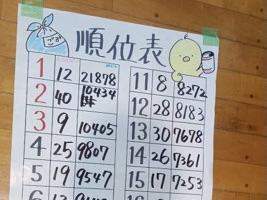 ごみ
順位表
1 12 21878
2 40 10434
3 9 10405
4 25 9807
5 19 9547
6
11 8 8272
12 28 8183
13 30 7678
14 26 7361
15 17 7253
16